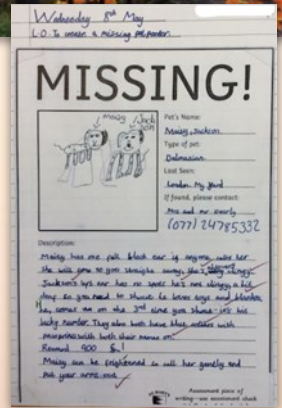 Wednesday 8th May
L.O. To create a missing pet poster.
MISSING!
Maisy
Jackson
Pet's Name:
Maisy, Jackson
Type of pet:
Dalmasian
Last Seen:
London My Yard
If found, please contact:
Mrs and mr
(077) 24785332
Description:
Maisy has one full black ear if anyone sees her
she will come to you straight away, she's very clingy.
Jackson's left ear has no spots he's not clingy a bit
deaf so you need to shout he loves toys and blankets
he, comes on on the 3rd time you shout - it's his
lucky number. They also both have blue collars with
pawprints with both their names on.
Reward 900 £!
Maisy can be frightened so call her gently and
put your arms out.
Assessment piece of
writing - see assessment sheet